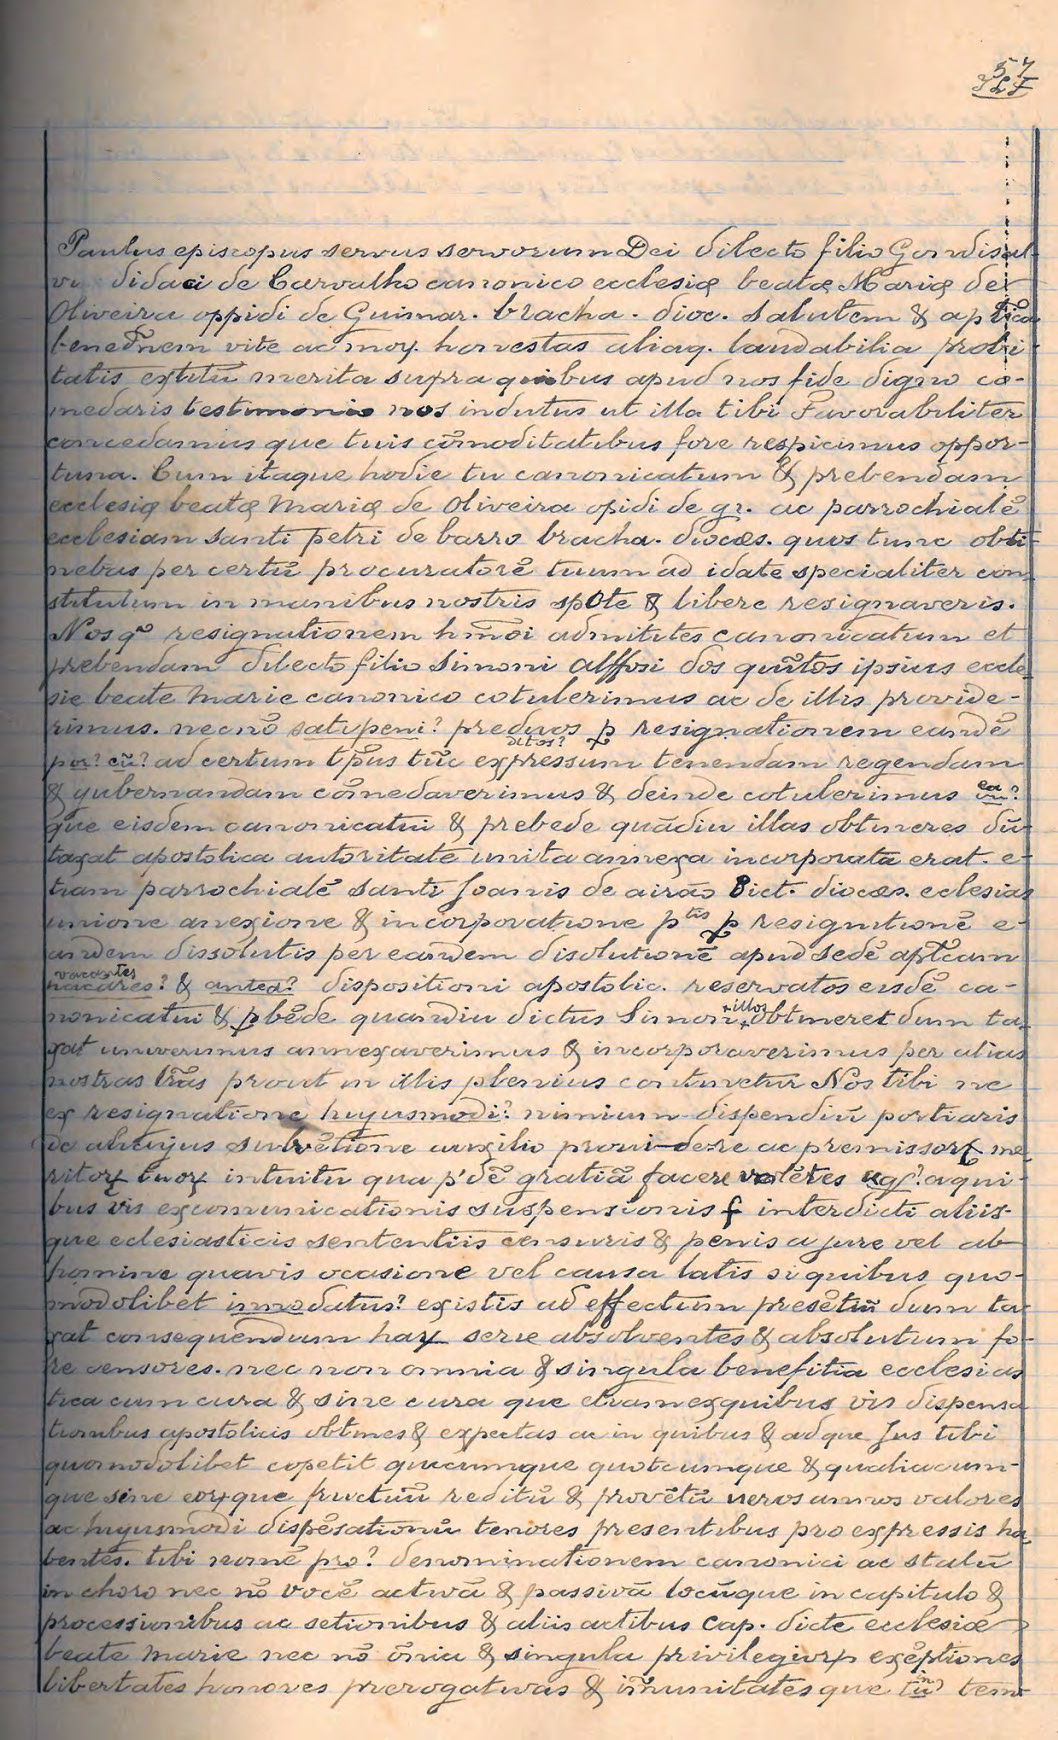 57
Paulus episcopus servus servorum Dei dilecto filio Gondisal-
vi didaci de Carvalho canonico ecclesię beatę Marię de
Oliveira oppidi de Guimar. bracha. dioc. salutem & apticã
benedñem vite ac moꝝ. honestas aliaq. laudabilia probi-
tatis extitũ merita supra quibus apud nos fide digno co-
medaris testimonio nos indutus ut illa tibi favorabiliter
concedamus que tuis cõmoditatibus fore respicimus oppor-
tuna. Cum itaque hodie tu canonicatum & prebendam
ecclesię beatę Marię de Oliveira opidi de gr. ac parrochialẽ
ecclesiam santi petri de barro bracha. dioces. quos tunc obti-
nebas per certũ procuratorẽ tuum ad idate specialiter con-
stitutum in manibus nostris spõte & libere resignaveris.
Nos qº resignationem hmõi admitites canonicatum et
prebendam dilecto filio Simoni Alffosi dos quĩtos ipsius eccle-
sie beate Marie canonico cotulerimus ac de illis provide-
rimus. nec nõ satupeni? preduos ꝑ resignationem eandẽ
ditos?
por? cũ? ad certum tp̃us tũc expressum tenendam regendam
& gubernandam cõmedaverimus & deinde cotulerimus
ea?
que eisdem canonicatui & prebede quãdiu illas obtineres dũ-
taxat apostolica autoritate unita annexa incorporata erat. e-
tiam parrochialẽ santi Joanis de airão Dict. dioces. eclesias
unione anexione & incorporatione ptis ꝑ resignitionẽ e-
andem dissolutis per eandem disolutionẽ apud sedẽ aptẽam
vacantes
nacares? & antea? dispositioni apostolic. reservatos eisdẽ ca-
nonicatui & pbẽde quandiu dictus Simon illos obtineret dum ta-
xat univerimus annexaverimus & incorporaverimus per alias
nostras lrãs prout in illis plenius continetur Nos tibi ne
ex resignatione hujusmodi? nimium dispendiũ portiaris
de alicujus subvẽtione auxilio providere ac premissorꝝ me-
ritoꝝ tuoꝝ intuitu qua p'dẽ gratiã facere volẽtes
aqui-
bus vis excomunicationis suspensionis f interdicti aliis-
que eclesiasticis sententiis censuris & penis a jure vel ab
homine quavis ocasione vel causa latis si quibus quo-
modolibet innodatus? existis ad effectum presẽtiũ dum ta-
xat consequendum haꝝ serie absolventes & absolutum fo-
re censores. nec non omnia & singula benefitia ecclesias
tica cum cura & sine cura que etiam exquibus vis dispensa
tionibus apostolicis obtines & expectas ac in quibus & ad que Jus tibi
quomodolibet copetit quecumque quotcumque & qualiacum-
que sine eoꝝque fructuũ reditũ & provẽtũ veros annos valores
ac hujusmodi dispẽsationũ tenores presentibus pro expressis ha-
bentes. tibi nomẽ pro? denominationem canonici ac stalũ
in choro nec nõ vocẽ activã & passivã locũque in capitulo &
processionibus ac setionibus & aliis actibus Cap. dicte ecclesiæ
beate Marie nec nõ õnia & singula privilegioꝝ exẽptiones
libertates honores prerogativas & im̃unitates que tũ? tem-